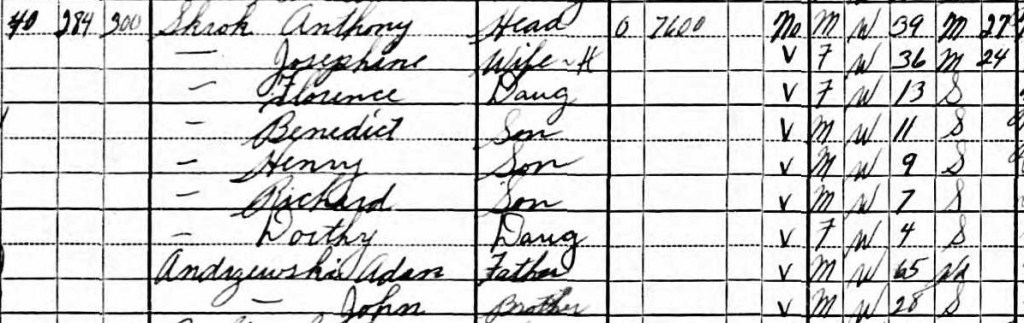 40 284 300 Skrok Anthony Head O 7600 No M W 39 M 27
— Josephine Wife-H V F W 36 M 24
— Florence Daug V F W 13 S
— Benedict Son V M W 11 S
— Henry Son V M W 9 S
— Richard Son V M W 7 S
— Dorthy Daug V F W 4 S
Andrzewski Adam Father V M W 65 Wd
— John Brother V M W 28 S